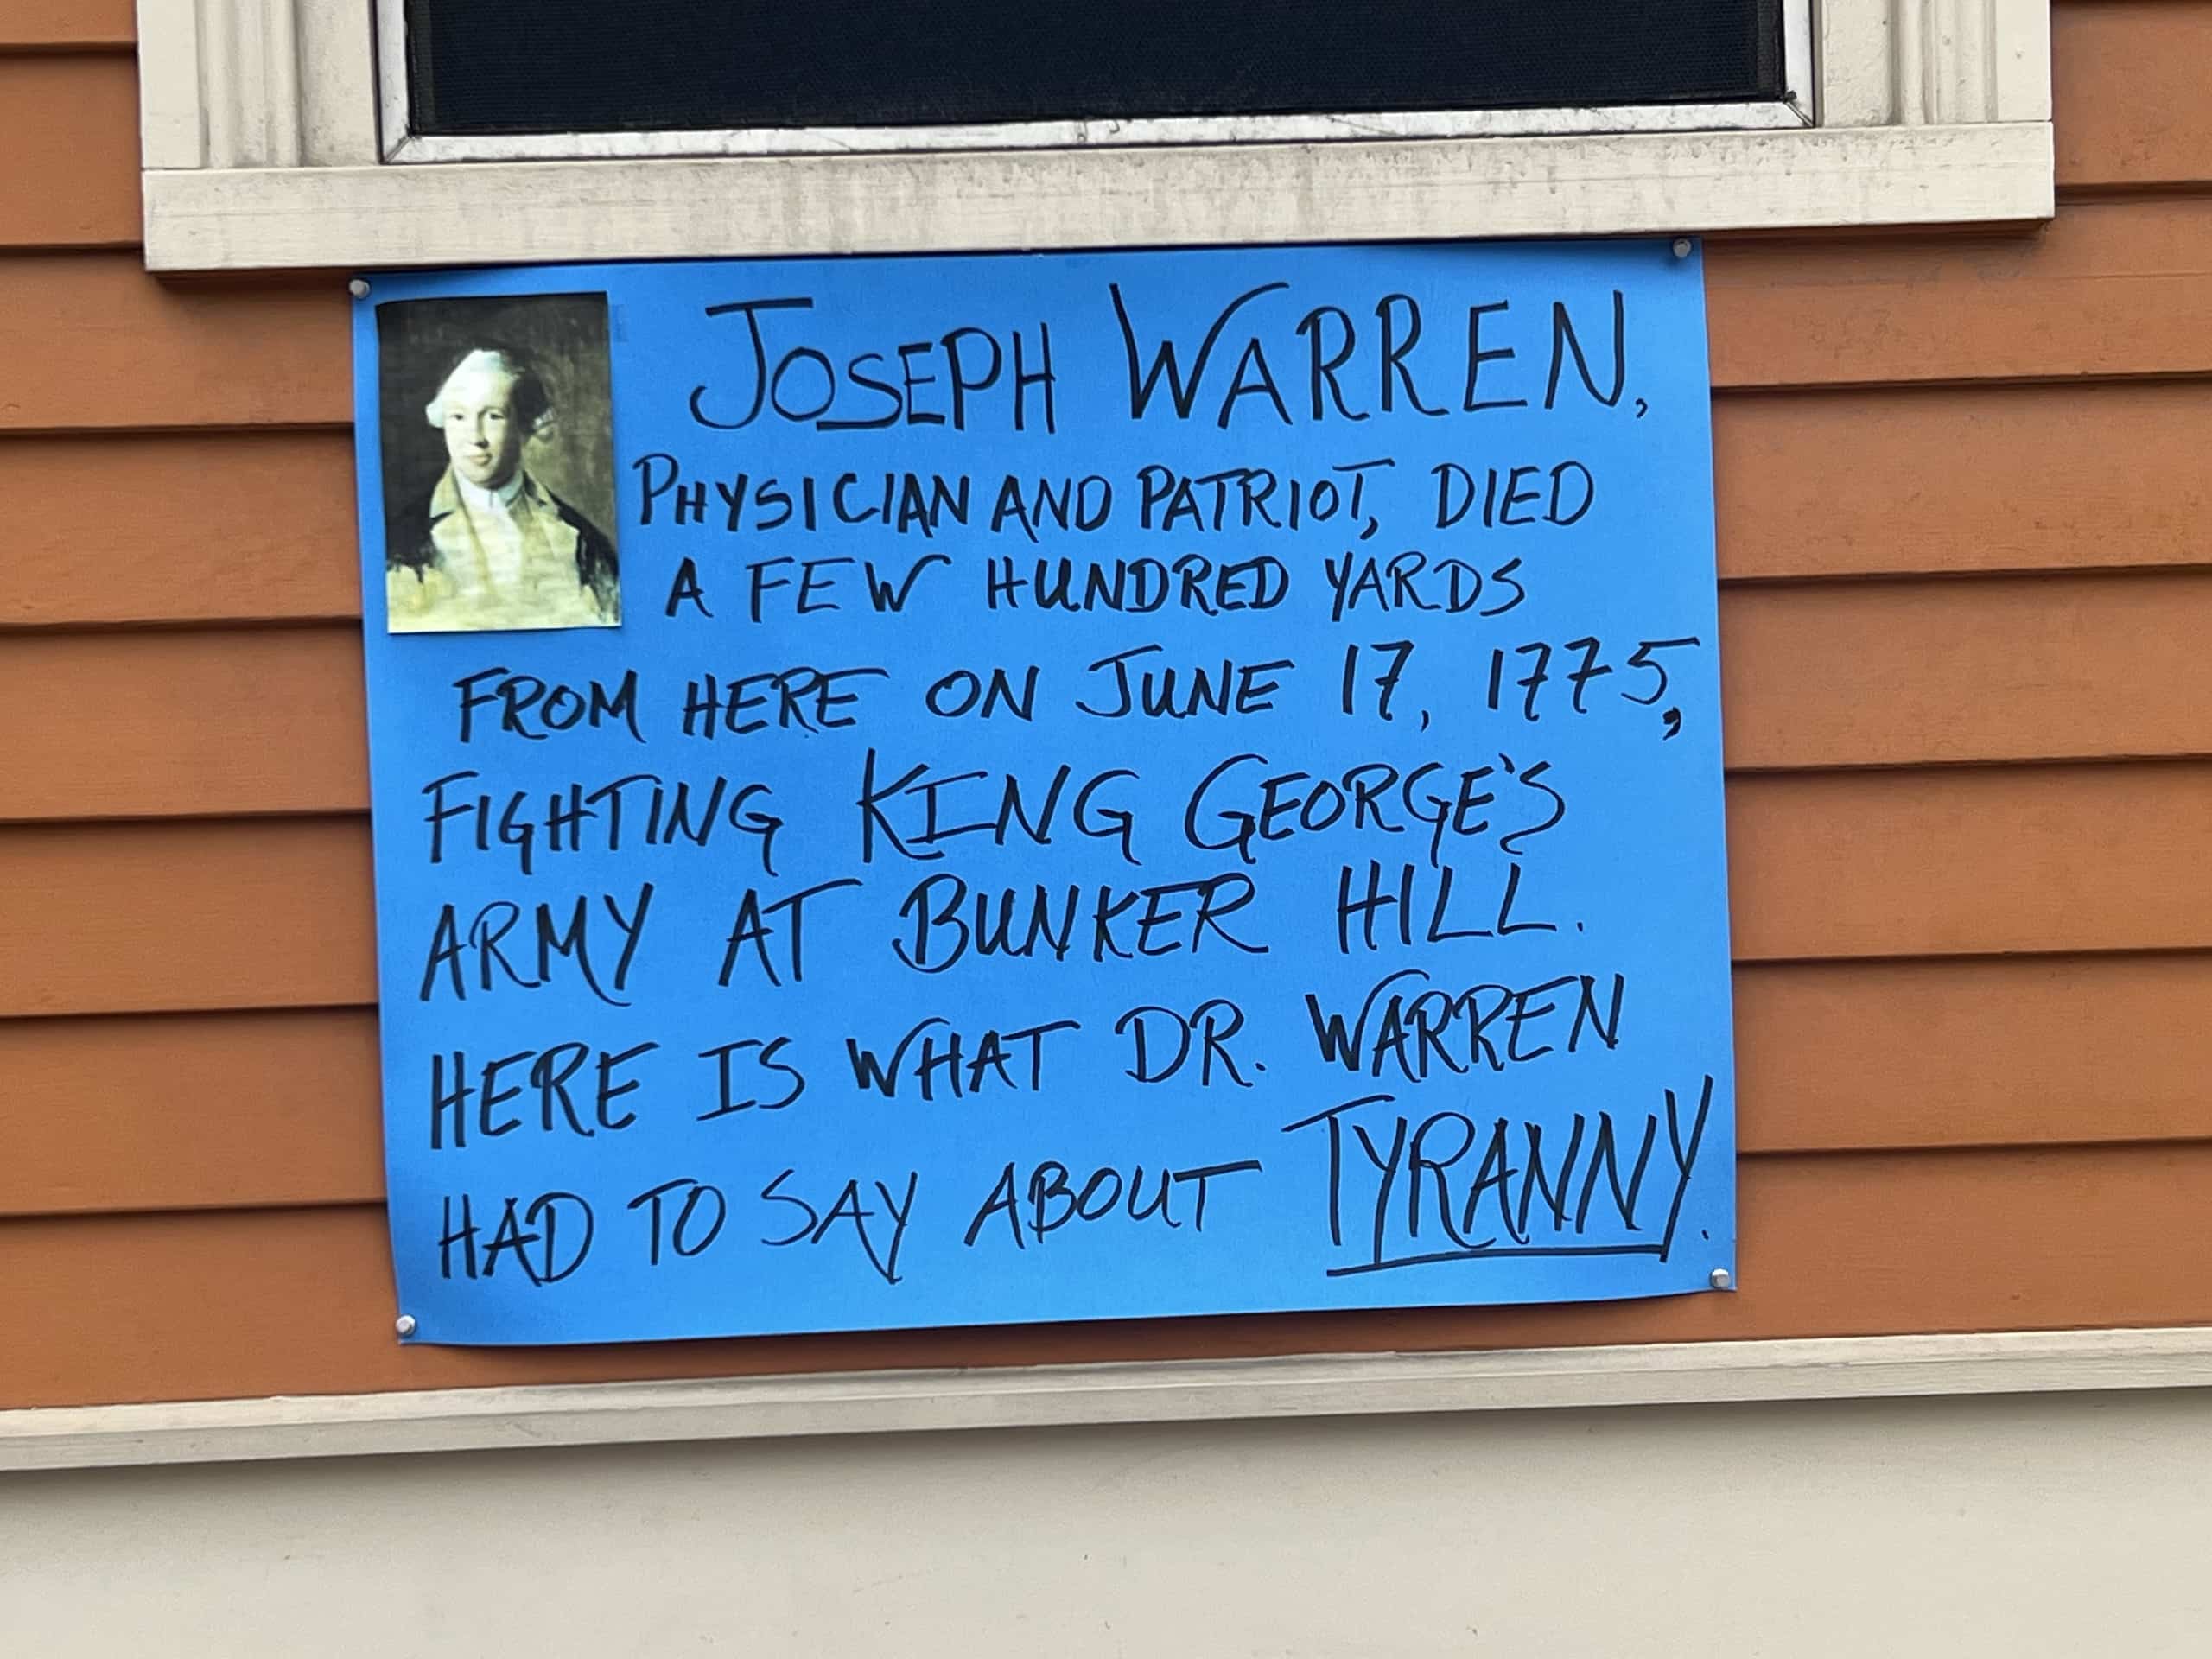 JOSEPH WARREN,
PHYSICIAN AND PATRIOT, DIED
A FEW HUNDRED YARDS
FROM HERE ON JUNE 17, 1775,
FIGHTING KING GEORGE'S
ARMY AT BUNKER HILL.
HERE IS WHAT DR. WARREN
HAD TO SAY ABOUT TYRANNY.